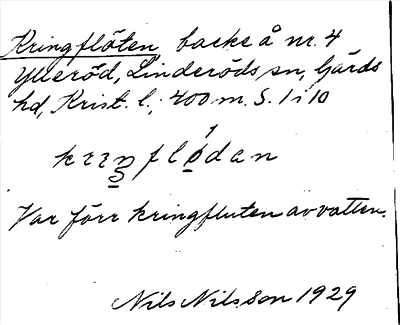 Kringflöten, backe å nr. 4
Ylleröd, Linderöds sn, Gärds
hd, Krist. l., 400 m. S. 1 i 10
Var förr kringfluten av vatten.
Nils Nilsson 1929